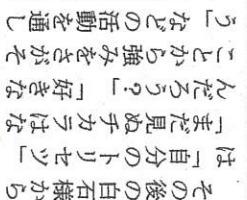 その後の白石様から
は「自分のトリセツ」
「まだ見ぬチカラはな
んだろう？」「好きな
ことから強みをさがそ
う」などの活動を通し